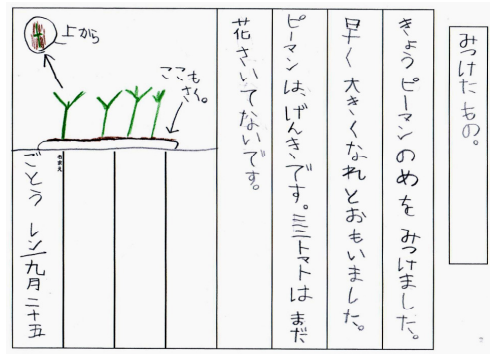 みつけたもの。
きょうピーマンのめをみつけました。
早く大きくなれとおもいました。
ピーマンは、げんきです。ミニトマトはまだ
花さいてないです。
上から
ここも
さく。
なまえ
ごとうレン/九月二十五